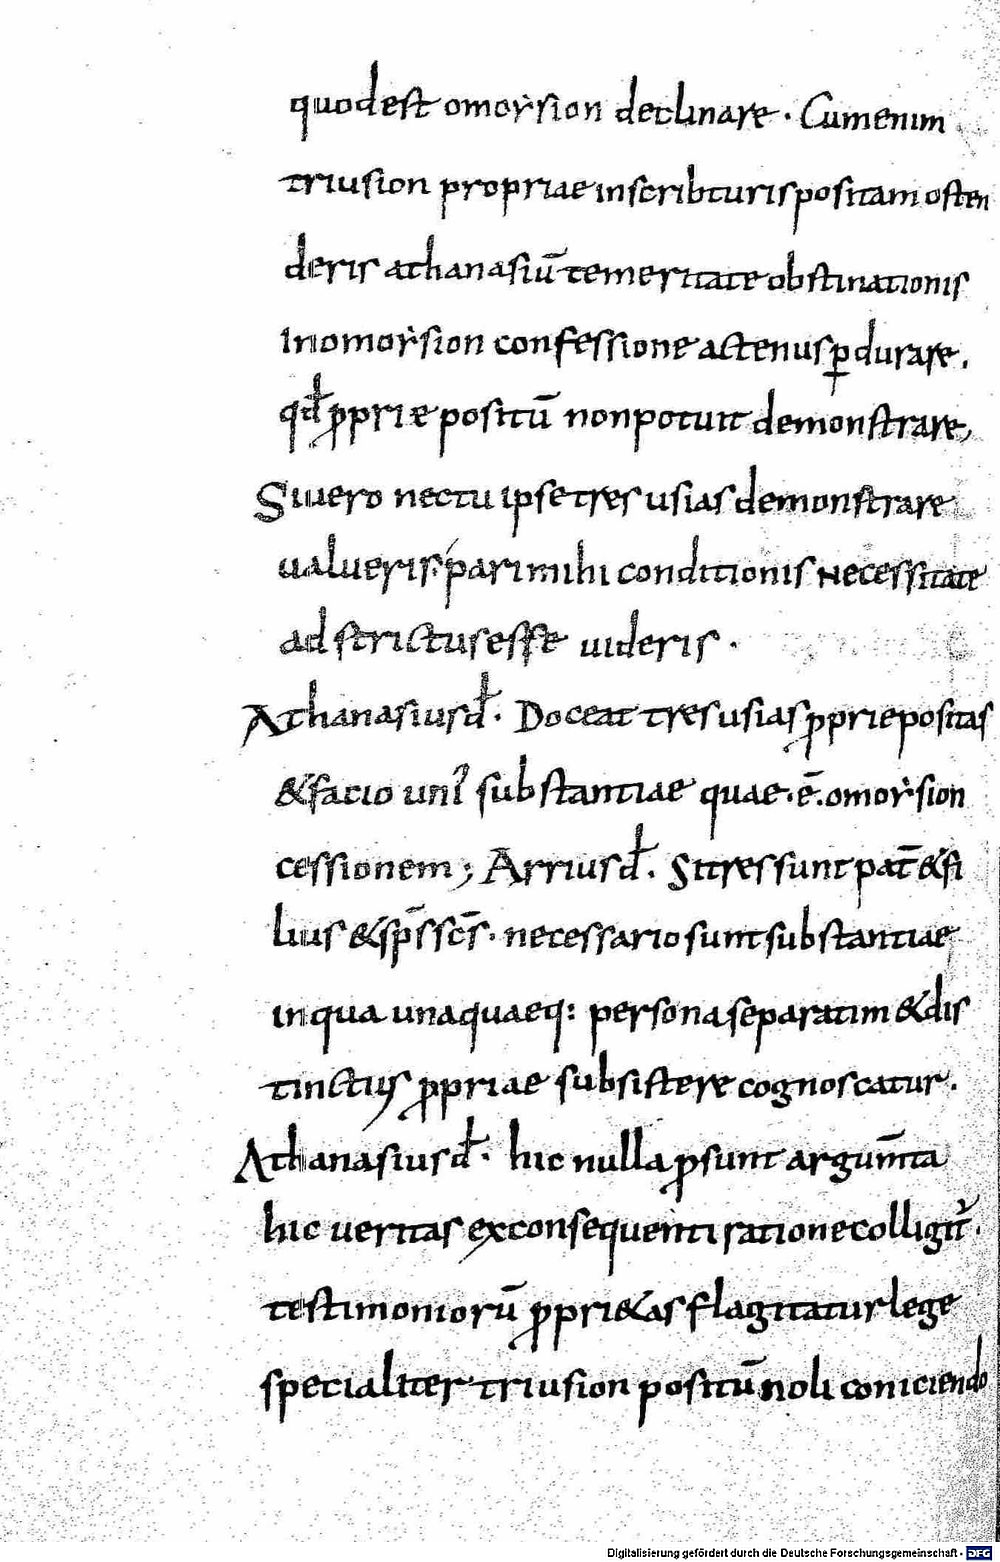 quodest omoẏsion declinare · Cumenim
triusion propriae inscribturis positam osten
deris athanasiū temeritate obstinationis
Inomoẏsion confessione actenus ꝑdurare.
qđ ꝓprie positū nonpotuit demonstrare,
Siuero nectu ipse tres usias demonstrare
ualueris· pari mihi conditionis necessitate
adstrictus esse uideris ·
Athanasius đ· Doceat tres usias ꝓprie positas
& facio unī substantiae quae · ē · omoẏsion
cessionem; Arrius đ. Si tres sunt pat̄ & fi
lius & sp̄s sc̄s · necessario sunt substantiae
in qua unaquaeq: persona separatim & dis
tinctius ꝓpriae subsistere cognoscatur .
Athanasius đ · hic nulla ꝓsunt argum̄ta
hic ueritas exconsequenti ratione colligit᷑ .
testimoniorū ꝓpri&as flagitatur lege
specialiter triusion positū noli coniciendo
Digitalisierung gefördert durch die Deutsche Forschungsgemeinschaft - DFG